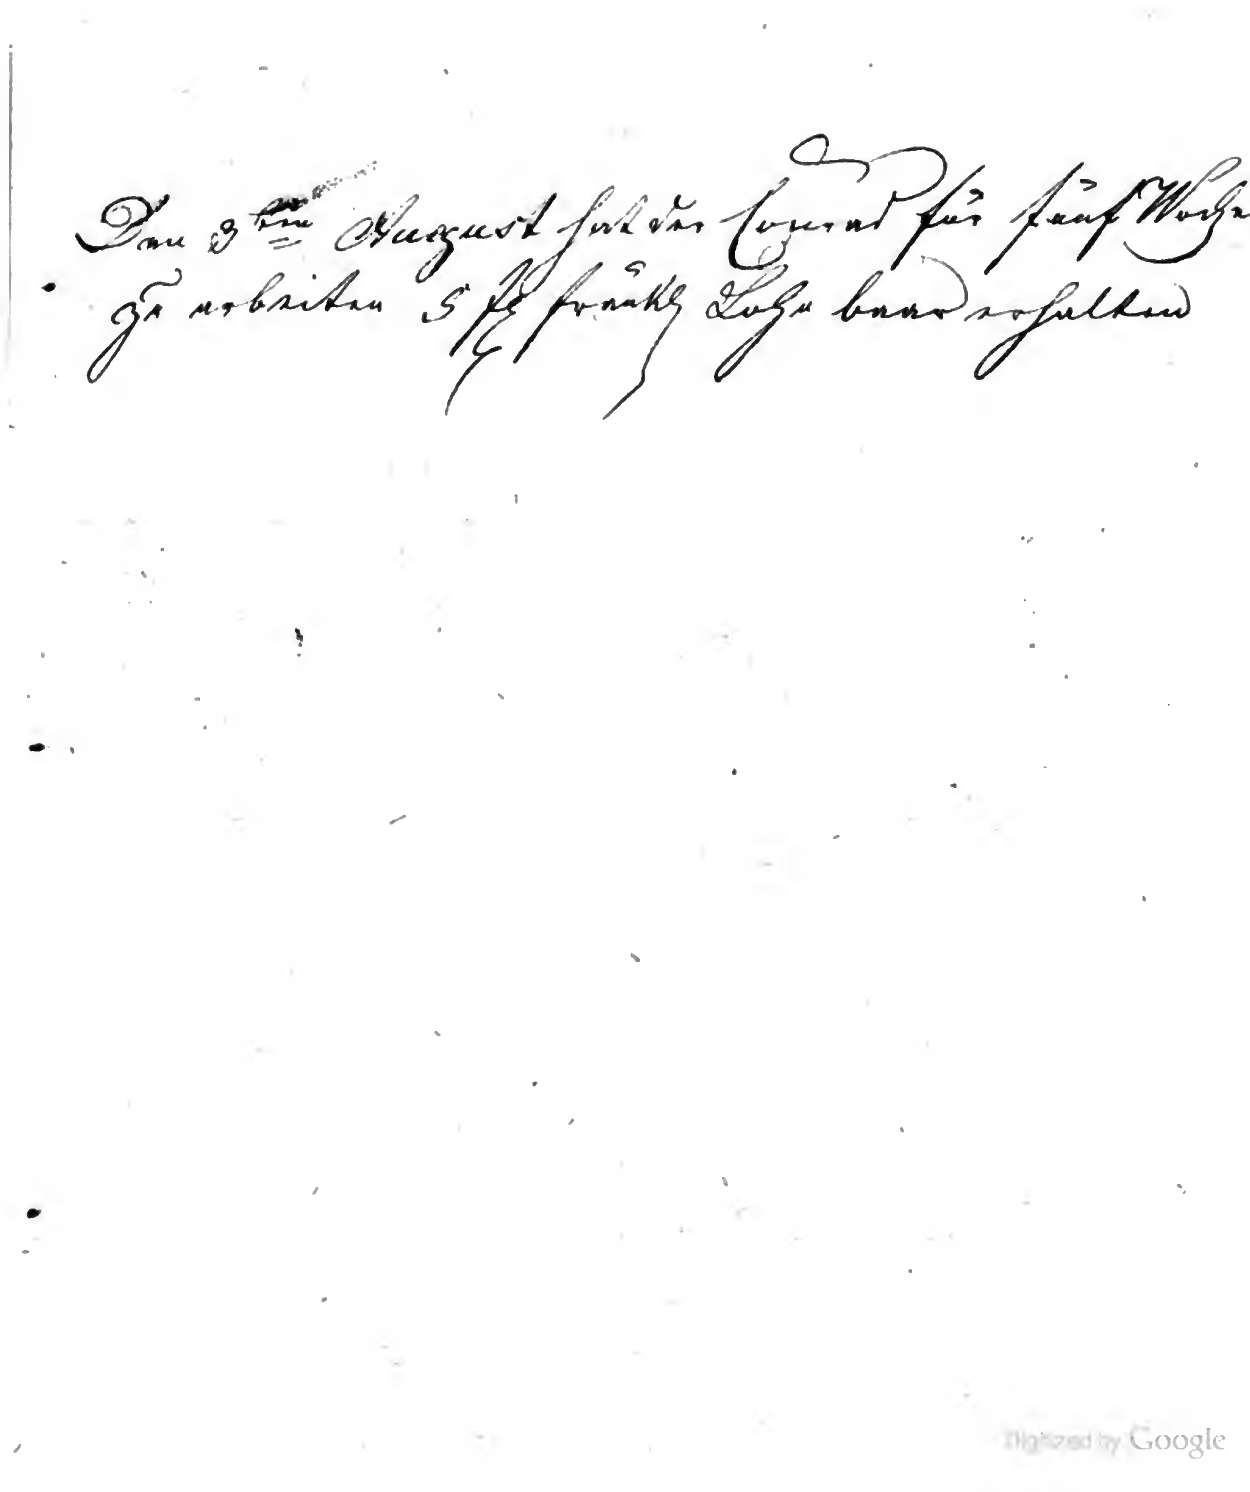 Den 3ten August hat der Conrad für fünf Woche
zu arbeiten 5 fl fränkl Lohn baar erhalten
Digitized by Google